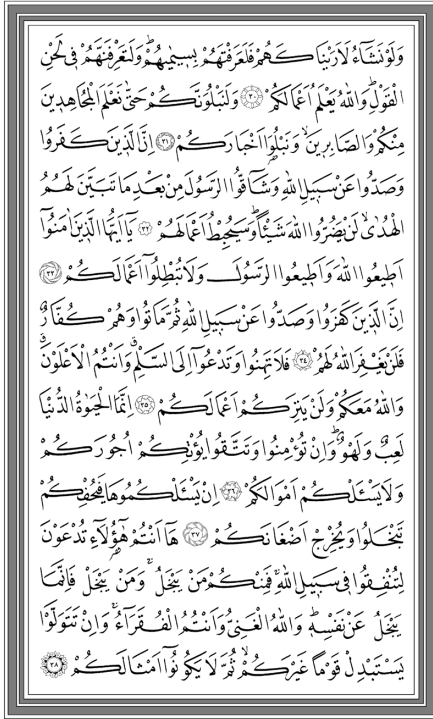 وَلَوْ نَشَٓاءُ لَاَرَيْنَاكَهُمْ فَلَعَرَفْتَهُمْ بِسِيمٰيهُمْۜ وَلَتَعْرِفَنَّهُمْ ف۪ي لَحْنِ
الْقَوْلِۜ وَاللّٰهُ يَعْلَمُ اَعْمَالَكُمْ ﴿٣٠﴾ وَلَنَبْلُوَنَّكُمْ حَتّٰى نَعْلَمَ الْمُجَاهِد۪ينَ
مِنْكُمْ وَالصَّابِر۪ينَۙ وَنَبْلُوَ۬ا اَخْبَارَكُمْ ﴿٣١﴾ اِنَّ الَّذ۪ينَ كَفَرُوا
وَصَدُّوا عَنْ سَب۪يلِ اللّٰهِ وَشَٓاقُّوا الرَّسُولَ مِنْ بَعْدِ مَا تَبَيَّنَ لَهُمُ
الْهُدٰىۙ لَنْ يَضُرُّوا اللّٰهَ شَيْـًٔاۜ وَسَيُحْبِطُ اَعْمَالَهُمْ ﴿٣٢﴾ يَٓا اَيُّهَا الَّذ۪ينَ اٰمَنُٓوا
اَط۪يعُوا اللّٰهَ وَاَط۪يعُوا الرَّسُولَ وَلَا تُبْطِلُٓوا اَعْمَالَكُمْ ﴿٣٣﴾
اِنَّ الَّذ۪ينَ كَفَرُوا وَصَدُّوا عَنْ سَب۪يلِ اللّٰهِ ثُمَّ مَاتُوا وَهُمْ كُفَّارٌ
فَلَنْ يَغْفِرَ اللّٰهُ لَهُمْ ﴿٣٤﴾ فَلَا تَهِنُوا وَتَدْعُٓوا اِلَى السَّلْمِۗ وَاَنْتُمُ الْاَعْلَوْنَۗ
وَاللّٰهُ مَعَكُمْ وَلَنْ يَتِرَكُمْ اَعْمَالَكُمْ ﴿٣٥﴾ اِنَّمَا الْحَيٰوةُ الدُّنْيَا
لَعِبٌ وَلَهْوٌۜ وَاِنْ تُؤْمِنُوا وَتَتَّقُوا يُؤْتِكُمْ اُجُورَكُمْ
وَلَا يَسْـَٔلْكُمْ اَمْوَالَكُمْ ﴿٣٦﴾ اِنْ يَسْـَٔلْكُمُوهَا فَيُحْفِكُمْ
تَبْخَلُوا وَيُخْرِجْ اَضْغَانَكُمْ ﴿٣٧﴾ هَٓا اَنْتُمْ هٰٓؤُ۬لَٓاءِ تُدْعَوْنَ
لِتُنْفِقُوا ف۪ي سَب۪يلِ اللّٰهِۚ فَمِنْكُمْ مَنْ يَبْخَلُۚ وَمَنْ يَبْخَلْ فَاِنَّمَا
يَبْخَلُ عَنْ نَفْسِه۪ۜ وَاللّٰهُ الْغَنِيُّ وَاَنْتُمُ الْفُقَرَٓاءُۚ وَاِنْ تَتَوَلَّوْا
يَسْتَبْدِلْ قَوْمًا غَيْرَكُمْۙ ثُمَّ لَا يَكُونُٓوا اَمْثَالَكُمْ ﴿٣٨﴾